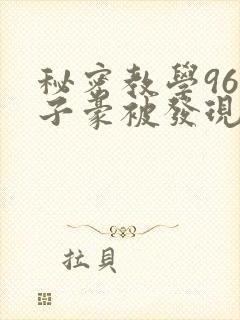 秘密教學96
子豪被發現
拉貝